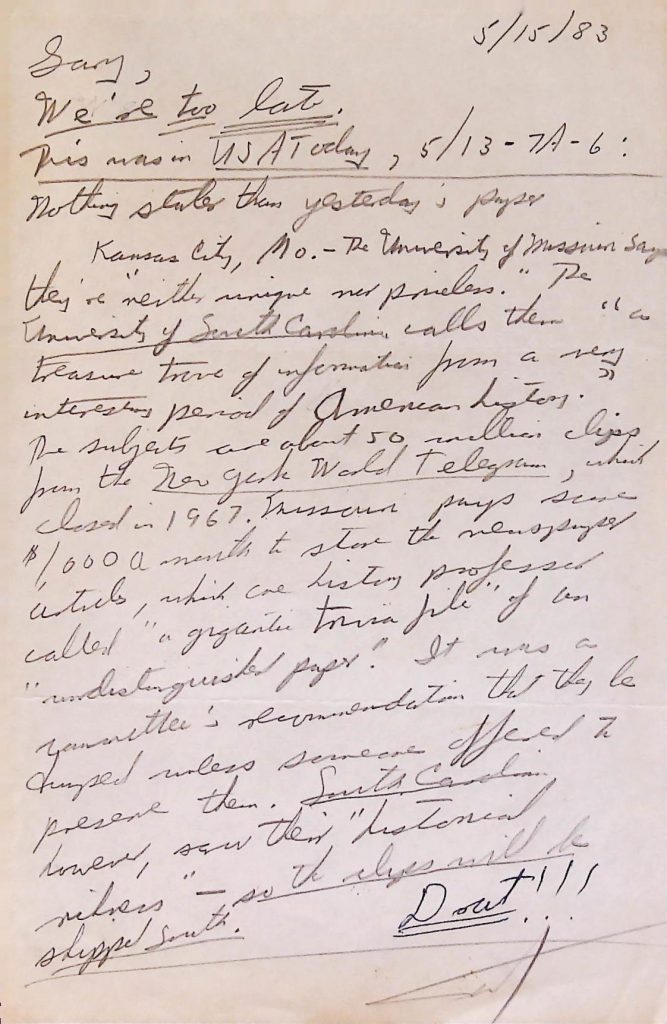 5/15/83
Gary,
We're too late.
This was in USA Today, 5/13-7A-6:
Nothing staler than yesterday's paper
Kansas City, Mo. - The University of Missouri says
they're "neither unique nor priceless." The
University of South Carolina calls them "a
treasure trove of information from a very
interesting period of American history."
The subjects are about 50 million clips
from the New York World Telegram, which
closed in 1967. Missouri pays some
$1,000 a month to store the newspaper
articles, which one history professor
called "a gigantic trivia file" of an
"undistinguished paper". It was a
committee's recommendation that they be
dumped unless someone offered to
preserve them. South Carolina,
however, saw their "historical
richness" - so the clips will be
shipped South.
Drat!!!